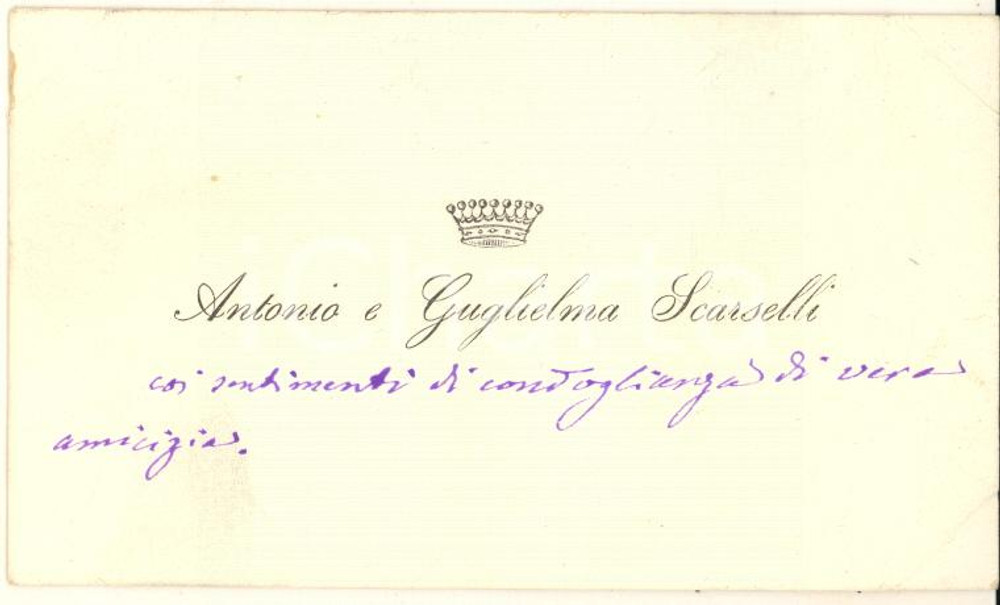 Antonio e Guglielma Scarselli
coi sentimenti di condoglianza di vera
amicizia.